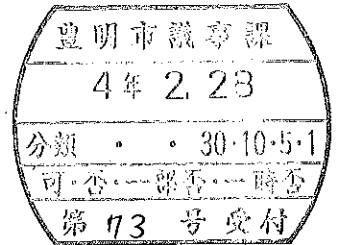 豊明市議事課
4年 2.28
分類 ・ ・ 30・10・5・1
可・否・一部否・一時否
第 73 号受付